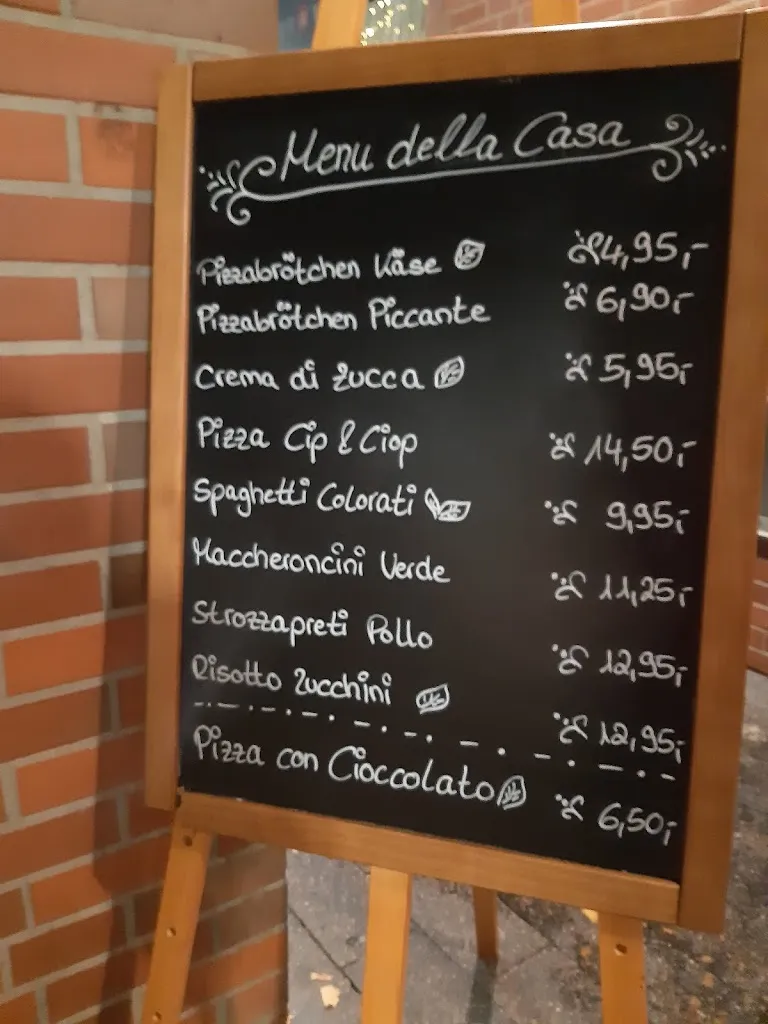 Menu della Casa
Pizzabrötchen Käse 4,95,-
Pizzabrötchen Piccante 6,90,-
Crema di Zucca 5,95,-
Pizza Cip & Ciop 14,50,-
Spaghetti Colorati 9,95,-
Maccheroncini Verde 11,25,-
Strozzapreti Pollo 12,95,-
Risotto Zucchini 12,95,-
Pizza con Cioccolato 6,50,-